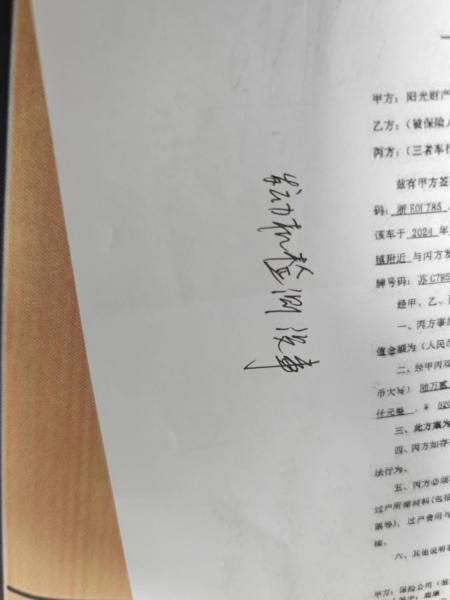 发动机检测没事
甲方：阳光财产
乙方：（被保险人
丙方：（三者车
兹有甲方签
码：浙E0F785
该车于 2024 年
镇附近 与丙方发
牌号码：苏C785
经甲、乙、
一、丙方事故
值金额为（人民币
二、经甲丙双
币大写）陆万贰
仟元整，￥ 620
三、此方案为
四、丙方如存
法行为。
五、丙方必须
过户所需材料(包括
等)，过户费用与
六、其他说明
甲方：保险公司（